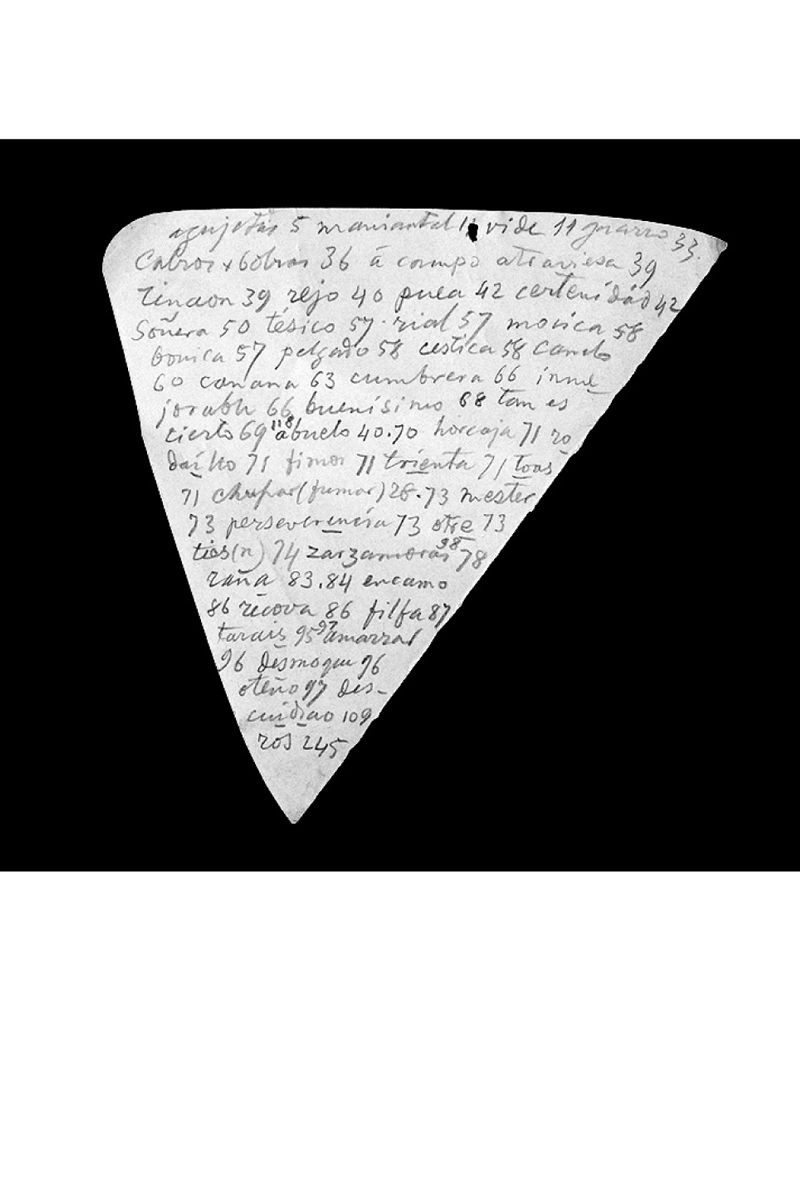 agujetas 5 maniantal 11 vide 11 guarro 33.
Cabros y bobras 36 á campo atraviesa 39
39 rejo 40 puea 42 certenidád 42
Soñera 50 tésico 57. rial 57 monica 58
bonica 57 pelgado 58 cestica 58 canelo
60 canana 63 cumbrera 66 inme
jorable 66 buenísimo 68 tan es
cierto 69 118 abuelo 40.70 horcaja 71 ro
daíllo 71 fimos 71 trienta 71 toas
71 chupar (fumar) 28.73 mester
73 perseverencia 73 otre 73
ties(n) 74 zarzamoras 98 78
raña 83.84 encamo
86 recova 86 filfa 87
tarais 95 97 amarzal
96 desmogue 96
oteño 97 des-
cuidiao 109
ros 245